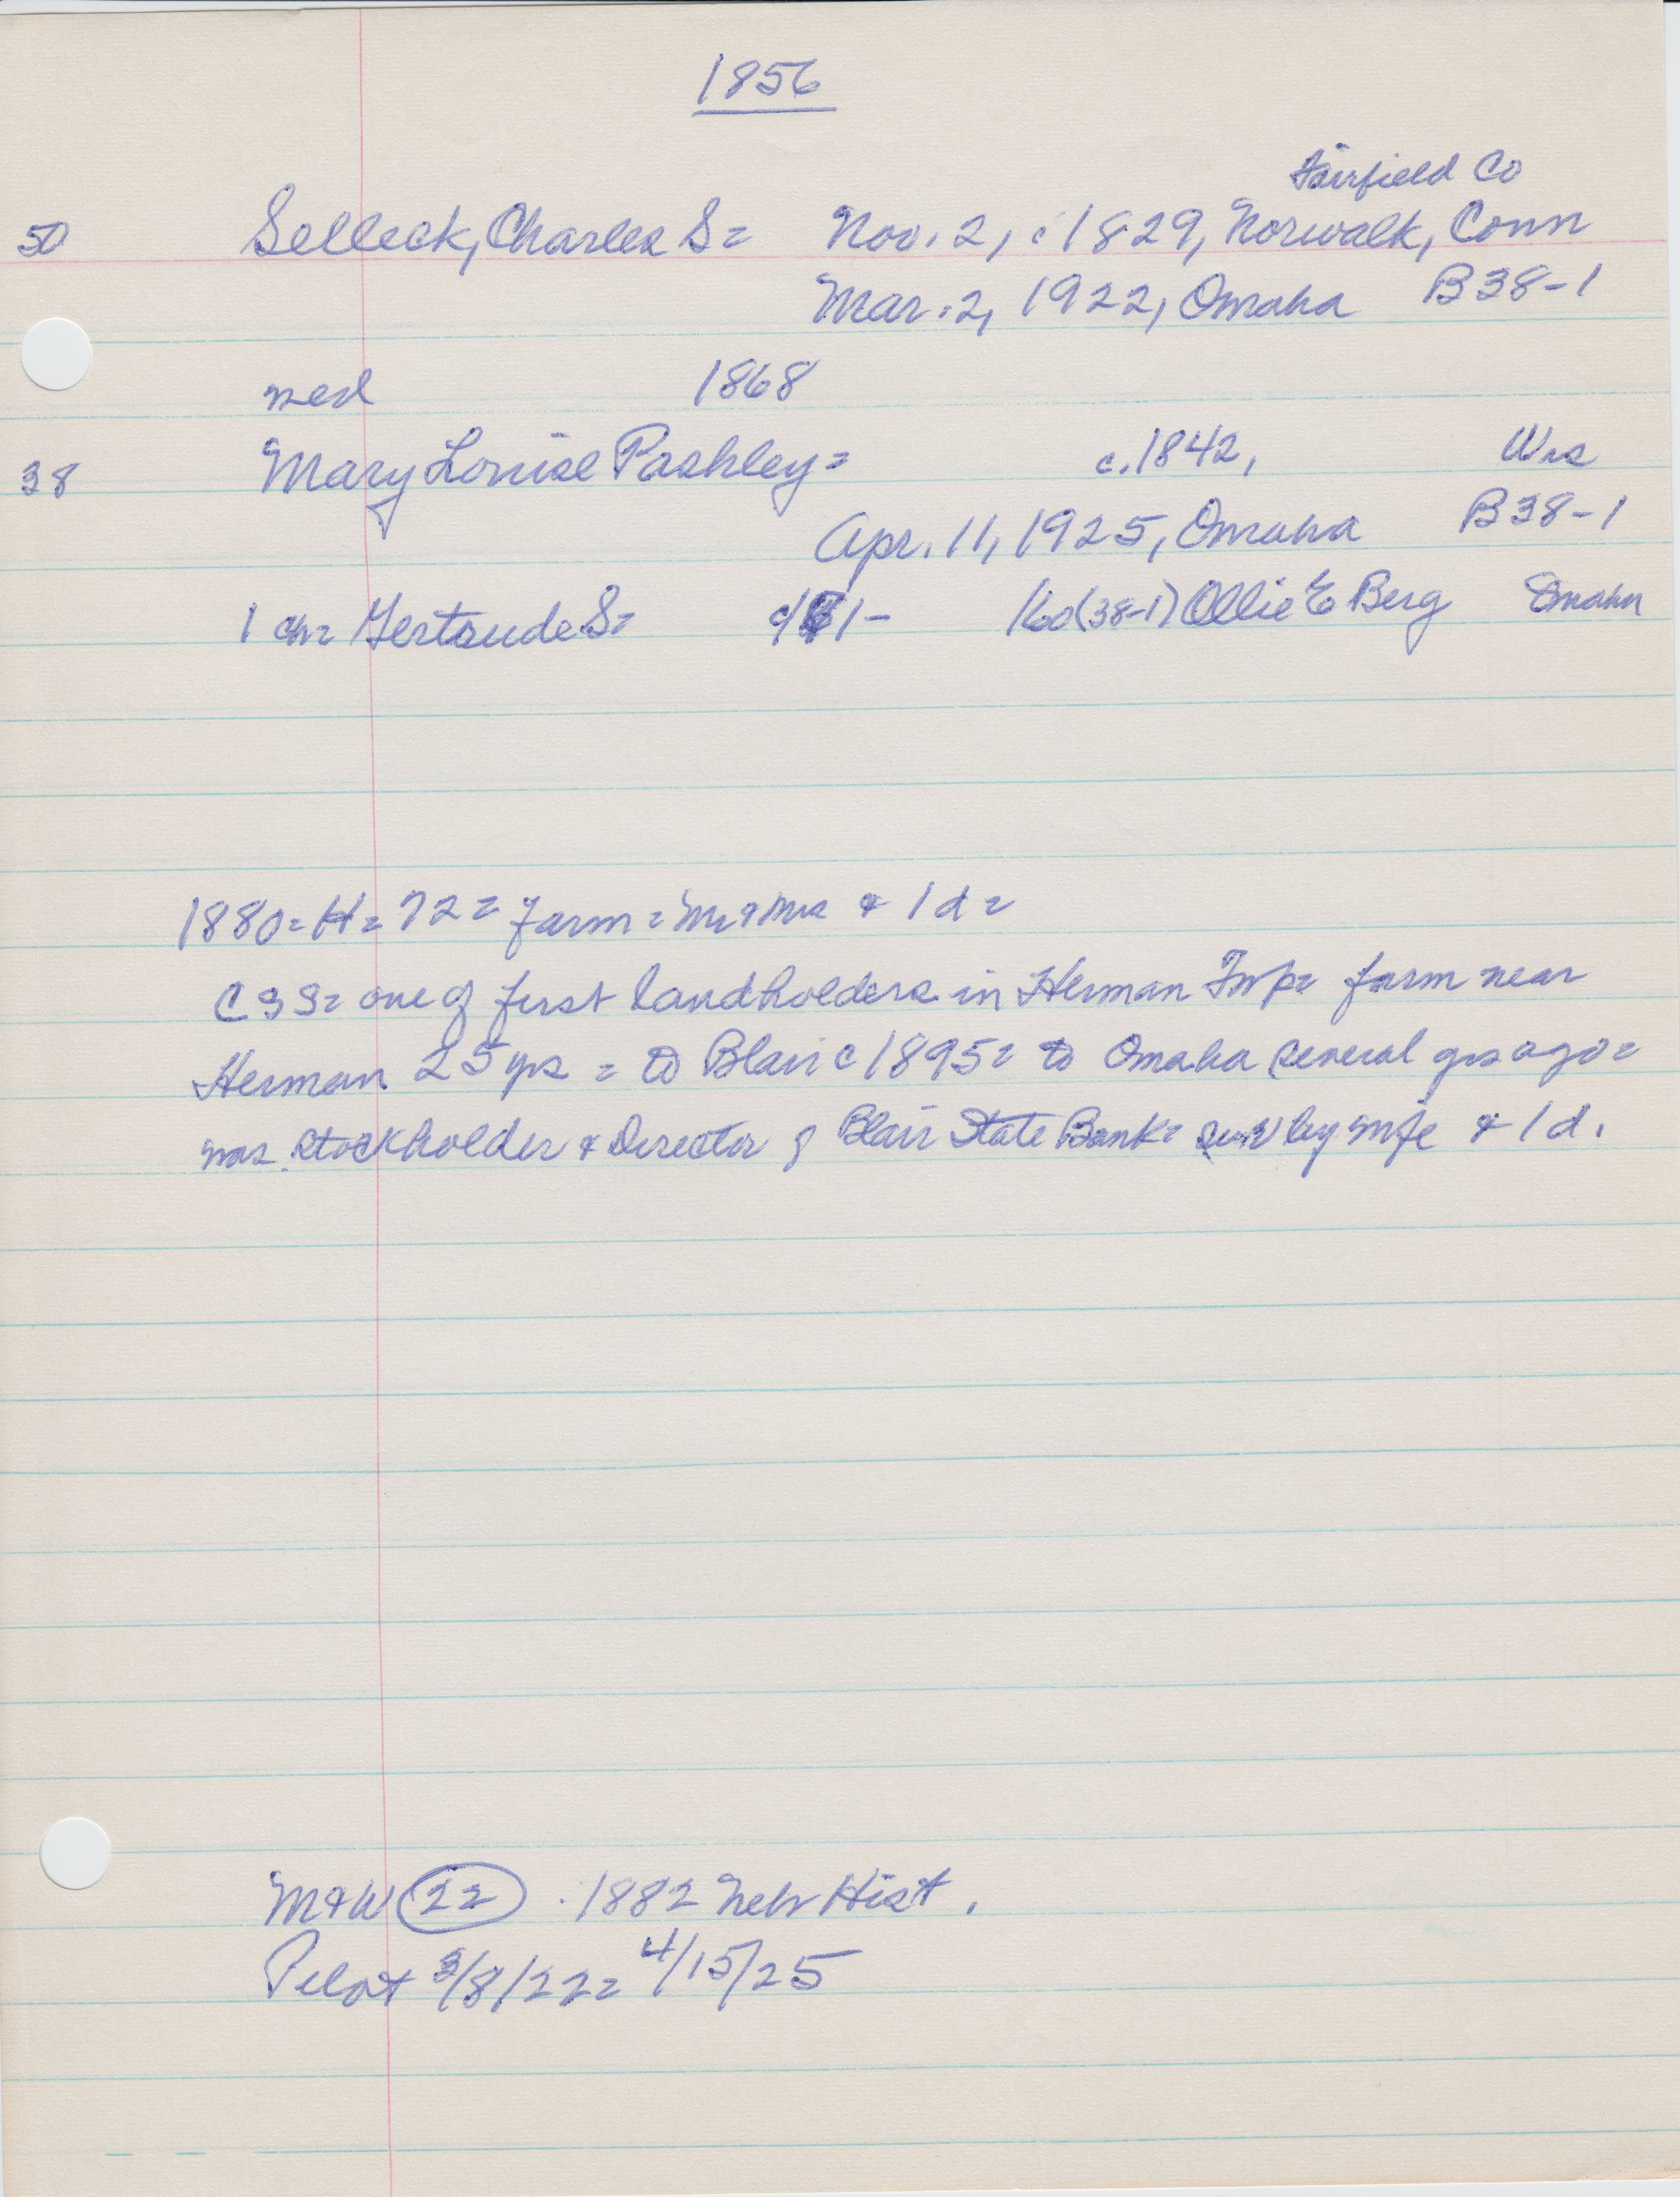 1856
Fairfield Co
50 Selleck, Charles S= Nov. 2, c1829, Norwalk, Conn
Mar. 2, 1922, Omaha B38-1
med 1868
38 Mary Louise Pashley= c.1842, Wis
Apr. 11, 1925, Omaha B38-1
1 ch= Gertrude S= (38-1) Ollie E Berg Omaha
1880= H= 72= Farm= Mr & Mrs & 1 d=
CSS= one of first landholders in Herman Twp= farm near
Herman 25 yrs = to Blair c1895= to Omaha several yrs ago=
was stockholder & Director of Blair State Bank= surv by wife & 1 d.
M&W 22 . 1882 Nebr Hist.
Pilot 3/8/22= 4/15/25